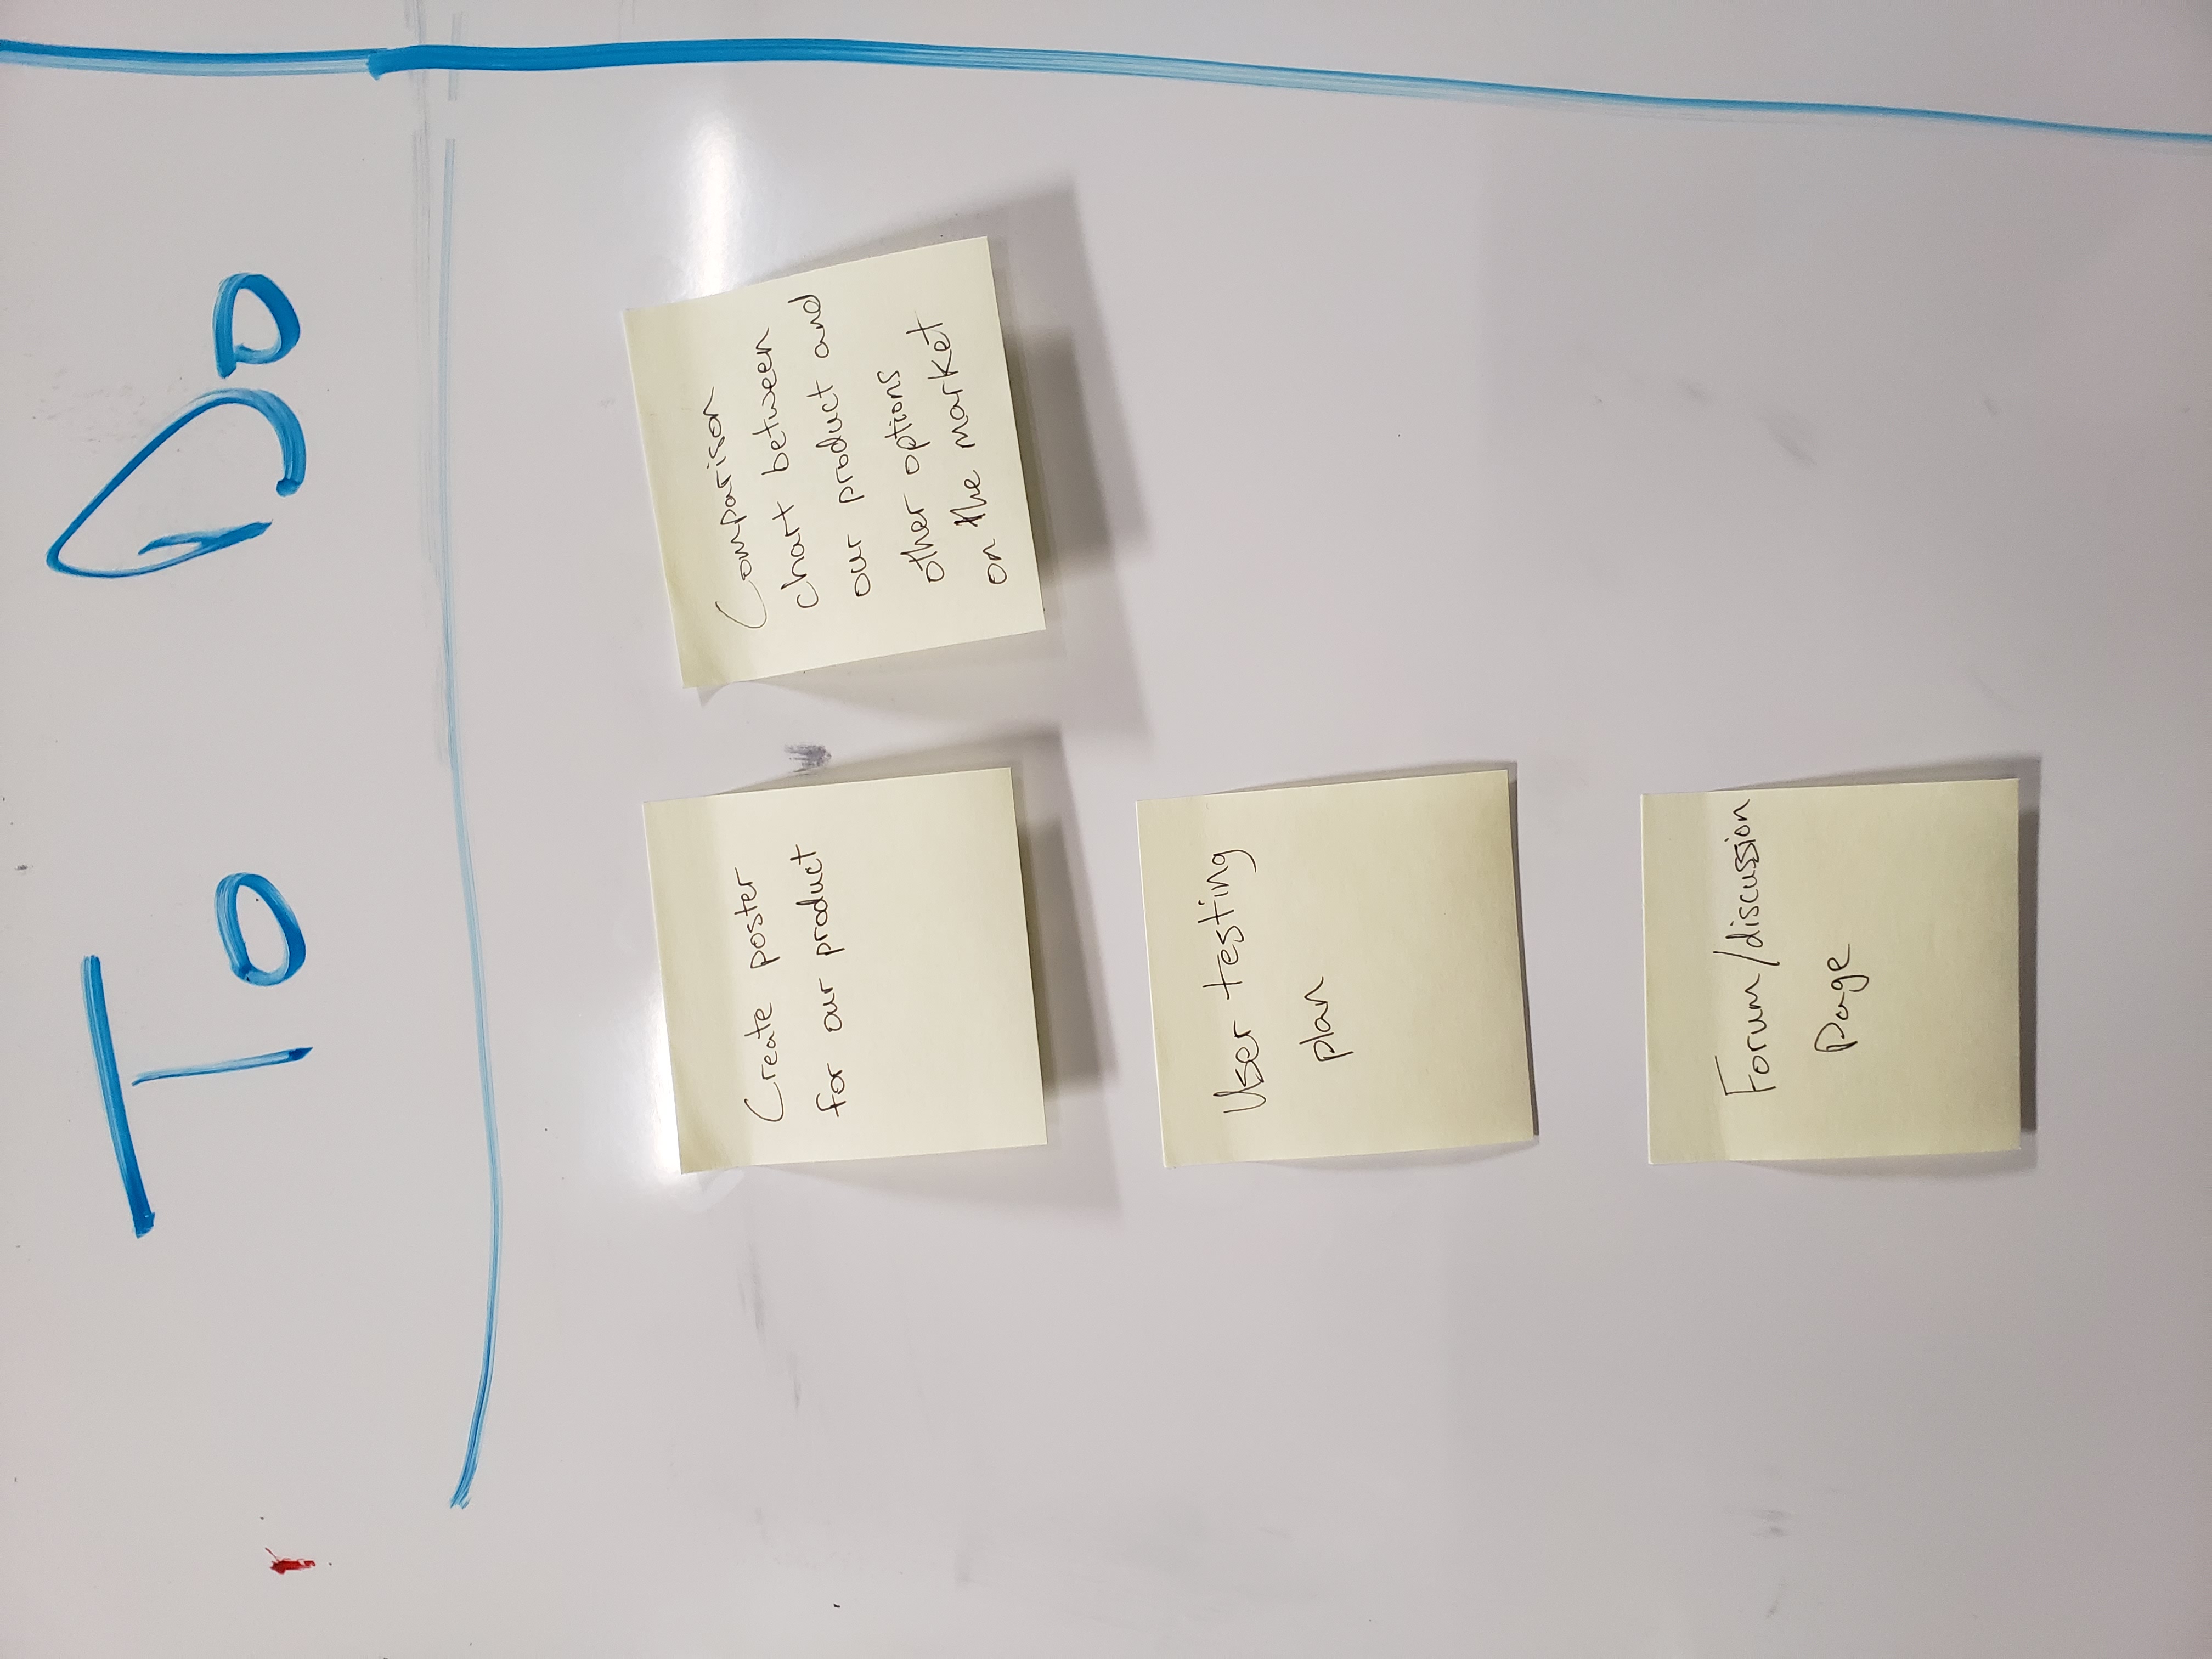 To Do
Create poster
for our product
Comparison
chart between
our product and
other options
on the market
User testing
plan
Forum/discussion
Page